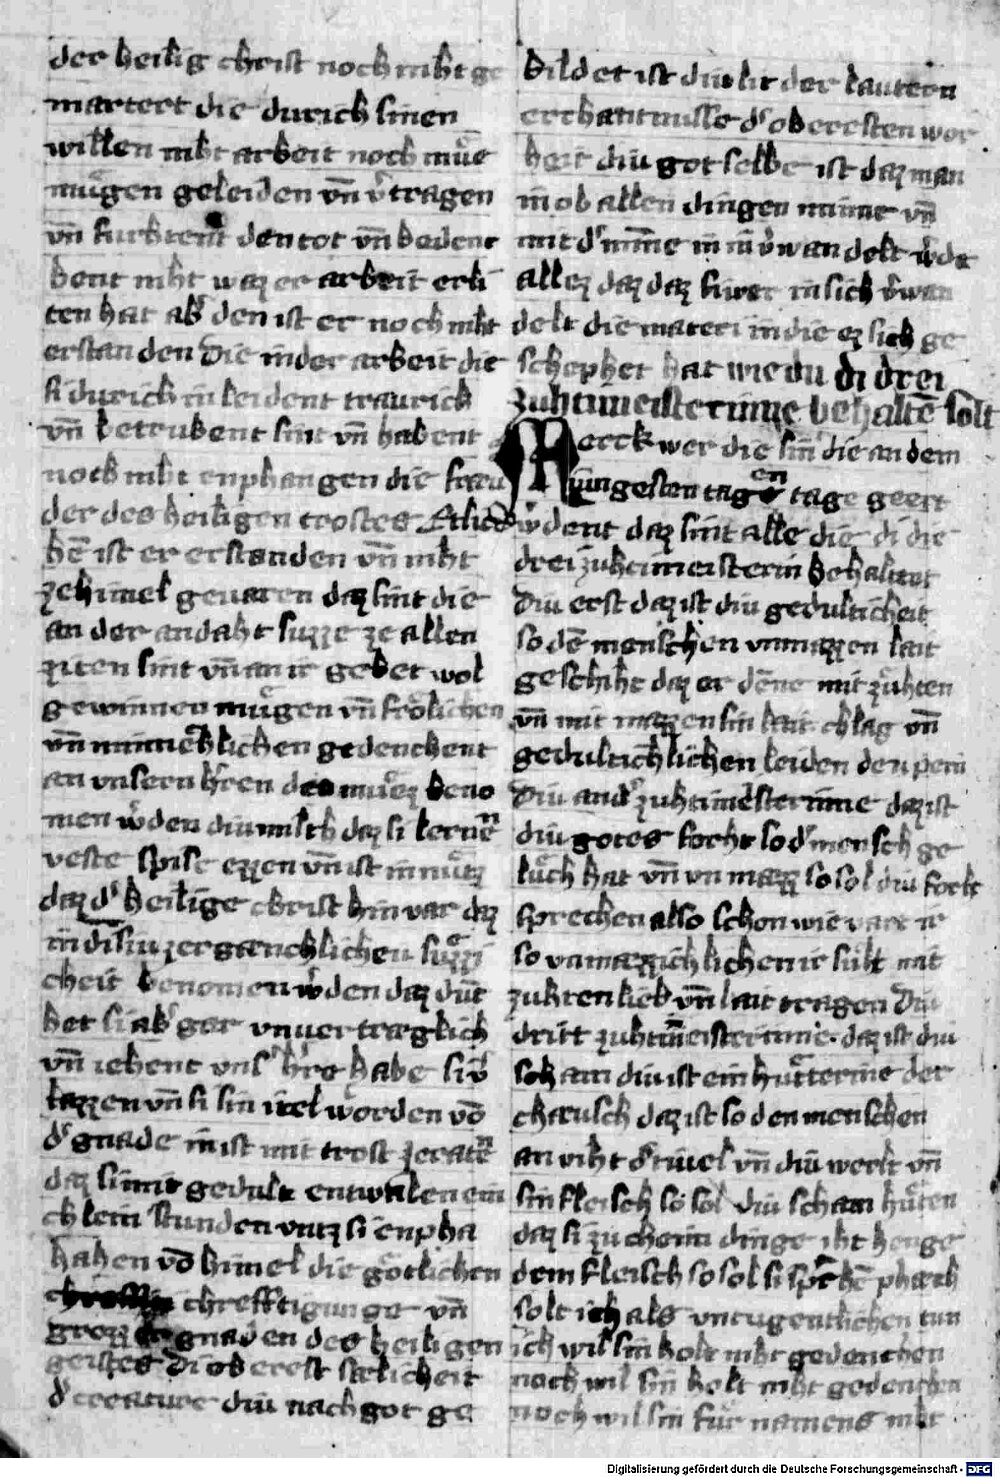 der heilig christ noch niht ge
martert die durich sinen
willen niht arbeit noch mue
mugen geleiden vn̄ v'tragen
vn̄ furhtent den tot vn̄ bedenc
kent niht waz er arbeit erli
ten hat ab' den ist er noch niht
erstanden Die in der arbeit die
si durich in leident traurich
vn̄ betrubent sint vn̄ habent
noch niht enphangen die freu
der des heiligen trostes Etlich
hē ist er erstanden vn̄ niht
ze himel geuaren daz sint die
an der andaht suzze ze allen
ziten sint vn̄ an ir gebet wol
gewinnen mugen vn̄ frolichen
vn̄ minnechlichen gedenchent
an vnsern h'ren den muez beno
men w'den diu milch daz si lernē
veste spise ezzen vn̄ ist in nutz
daz d' heilige christ hin var daz
in disiu zergenchlichen suzzi
cheit benomen w'den daz dunc
ket si ab' gar vnuertreglich
vn̄ iehent vns' h're habe si v'
lazzen vn̄ si sin itel worden vō
d' gnade in ist mit trost ze ratē
daz si mit gedult entwalen ein
chlein stunden vntz si enpha
hahen vō himel die gotlichen
chrefftigunge vn̄
grozz gnaden des heiligen
geistes Di oberest selicheit
d' creature diu nach got ge
bildet ist diu lit der lautern
erchantnusse d' obersten wor
heit diu got selbe ist daz man
in ob allen dingen minne vn̄
mit d' minne in in v'wandelt w'de
allez daz daz fiwer in sich v'wan
delt die materi in die ez sich ge
schephet hat wie du di drei
zuhtmeisterinne behaltē solt
Merck wer die sin die an dem
iungesten tagen tage geert
w'dent daz sint alle die di die
drei zuhtmeisterin behaltent
Diu erst daz ist diu gedulticheit
so dē menschen vnmazzen lait
geschiht daz er dēne mit zuhten
vn̄ mit mazzen sin lait chlag vn̄
gedultichlichen leiden den pein
Diu and' zuhtmeisterinne daz ist
diu gotes forht so d' mensch ge
luch hat vn̄ vn mazz so sol diu forht
sprechen also schon wie vart ir
so vnmezzichlichen ir sult mit
zuhten lieb vn̄ lait tragen Diu
dritt zuhtmeisterinne daz ist diu
scham diu ist ein hutterinne der
cheusch daz ist so den menschen
an viht d' tiuel vn̄ diu werlt vn̄
sin fleisch so sol diu scham huten
daz si zu cheim dinge iht henge
dem fleisch so sol si sprechē phech
solt ich als vntugentlichen tun
ich wil sin holt niht gedenchen
noch wil sin holt niht gedenchen
noch wil sin fur namens niht
Digitalisierung gefördert durch die Deutsche Forschungsgemeinschaft - DFG